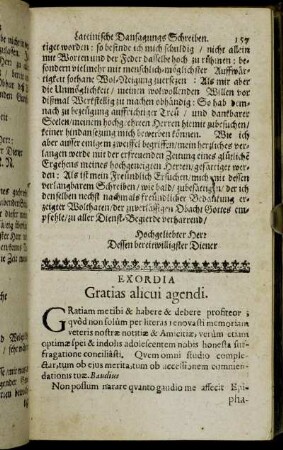 Lateinische Dancksagungs Schreiben. 157
tiget worden: so befinde ich mich schuldig / nicht allein
mit Worten und der Feder dasselbe hoch zu rühmen: be-
sondern vielmehr mit menschlich-möglichster Auffwär-
tigkeit sothane Wol-Neigung zuersetzen: Als mir aber
die Unmögligkeit / meinen wolwollenden Willen vor
dismal Werckstellig zu machen obhändig: So hab dem-
nach zu bezeigung auffrichtiger Treü / und danckbarer
Seelen / meinen hochg. ehrten Herren hiemit zubesuchen /
seiner hindansetzung mich bewerben können. Wie ich
aber ausser einigem zweiffel begreiffen / mein herzliches ver-
langen werde mit der erfreuenden Zeitung eines glückliche
Ergehens meines hochgeneigten Herren / gesättiget wer-
den: Als ist mein Freündlich Ersuchen / mich mit dessen
verlangbarem Schreiben / wie bald / zubesätigen / der ich
denselben nechst nachmals freündlicher Bedanckung er-
zeigter Wolthaten / der zuverlässigen Obacht Gottes em-
pfehle / zu aller Dienst-Begierde verharrend /
Hochgeliebter Herr
Dessen bereitwilligster Diener
EXORDIA
Gratias alicui agendi.
GRatiam me tibi & habere & debere profiteor;
qvòd non solùm per literas renovasti memoriam
veteris nostræ notitiæ & Amicitiæ, verùm etiam
optimæ spei & indolis adolescentem nobis honesta suf-
fragatione conciliâsti. Qvem omni studio comple-
ctar, tum ob ejus merita, tum ob accessionem commen-
dationis tuæ. Baudius
Non possum narare qvanto gaudio me affecit Epi-
pha-